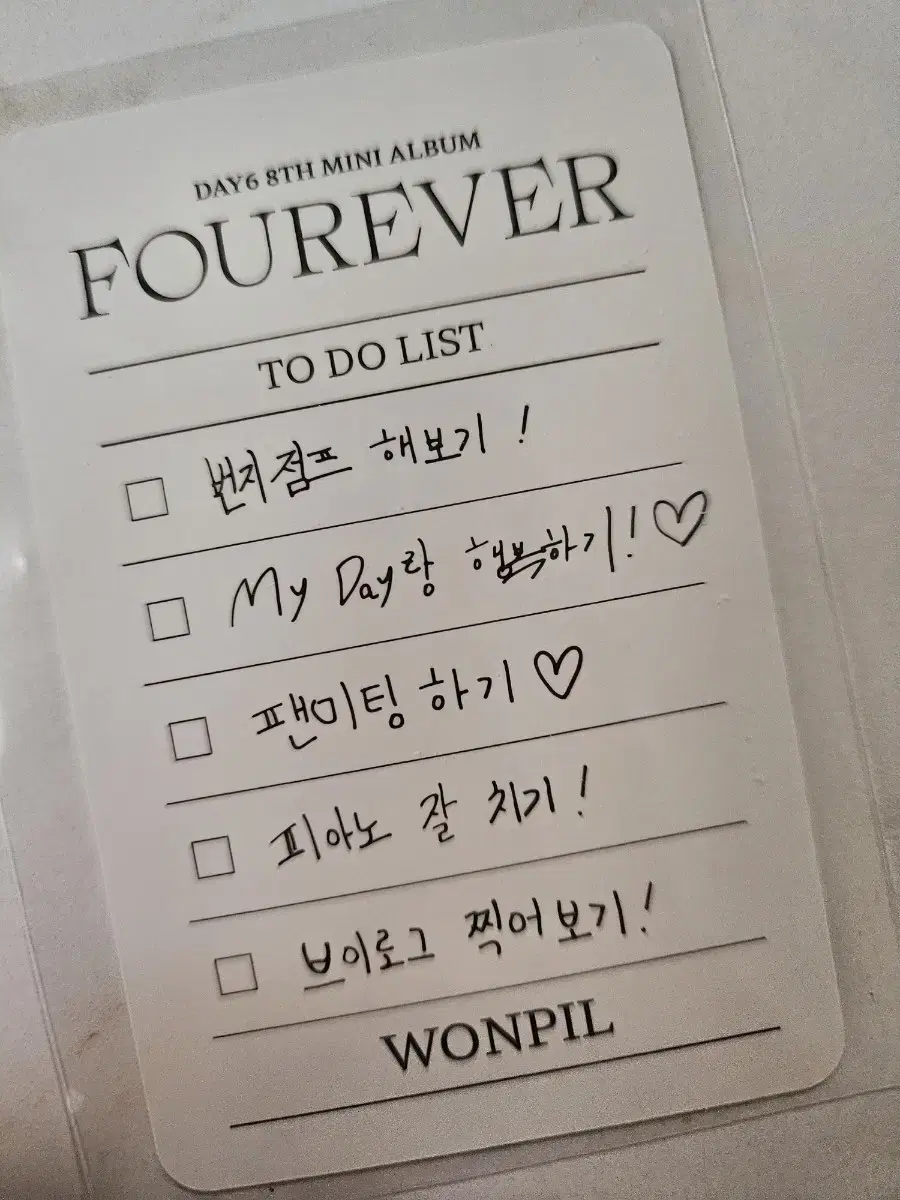 DAY6 8TH MINI ALBUM
FOUREVER
TO DO LIST
번지점프 해보기!
My Day랑 행복하기!♡
팬미팅 하기♡
피아노 잘 치기!
브이로그 찍어보기!
WONPIL